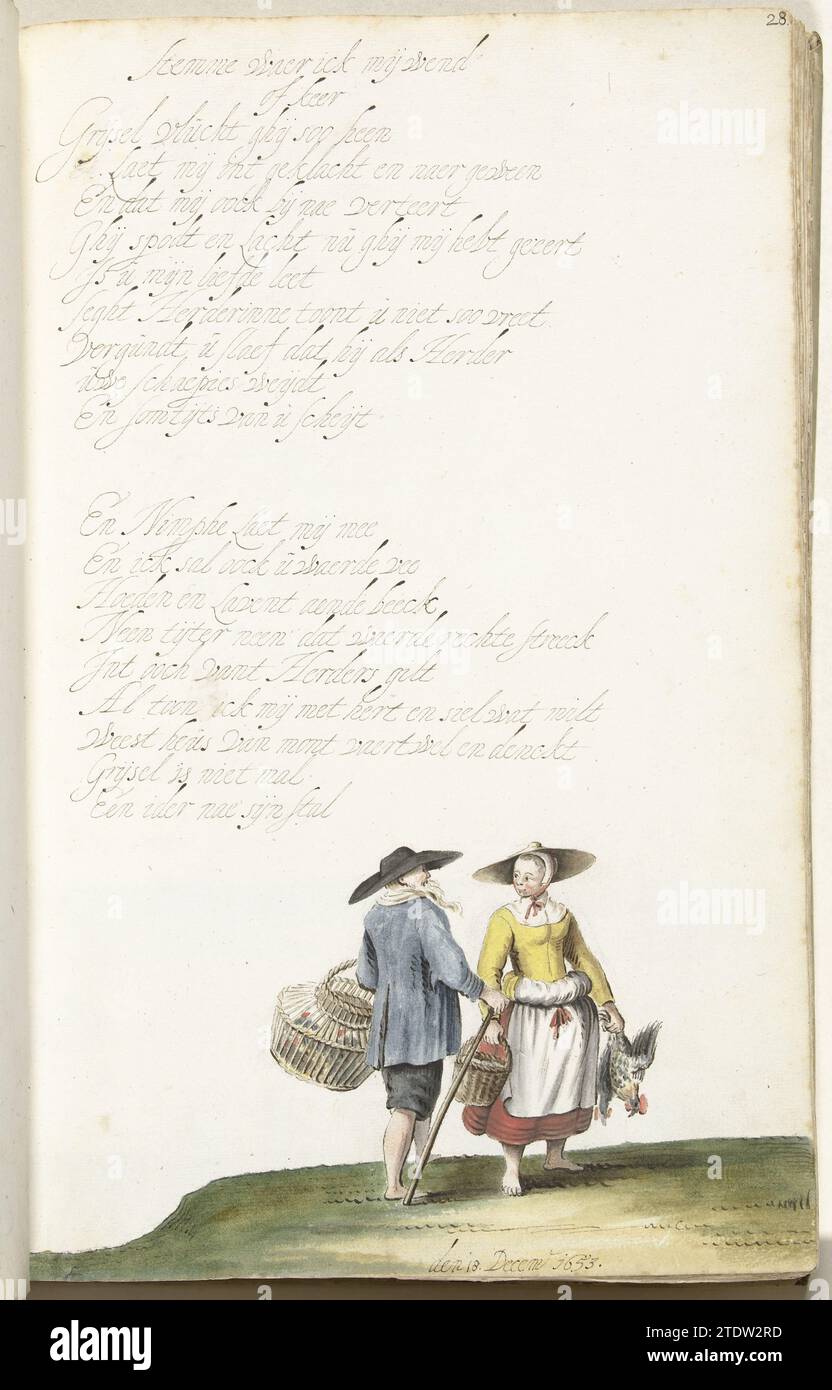 28.
Stemme Waer ick mij wend
of keer
Grijsel vlucht ghij soo heen
Laet mij int geklacht en naer geween
En dat mij oock bij nae verteert
Ghij spodt en Lacht nu ghij mij hebt geeert
Is u mijn liefde leet
seght Herderinne toont u niet soo vreet
Vergundt u slaef dat hij als Herder
uwe schaepies weijdt
En somtijts van u scheijt
En Nimphe Laet mij mee
En ick sal oock u waerde vee
Hoeden en Lavent aende beeck
Neen tijter neen dat waer de rechte streeck
Int ooch vant Herders gilt
Al toon ick mij met hert en siel wat milt
Weest heus van mont vaert wel en denckt
Grijsel is niet mal
Een ider nae sijn stal
den 18. Decemr 1653.
alamy
Image ID: 2TDW2RD
www.alamy.com